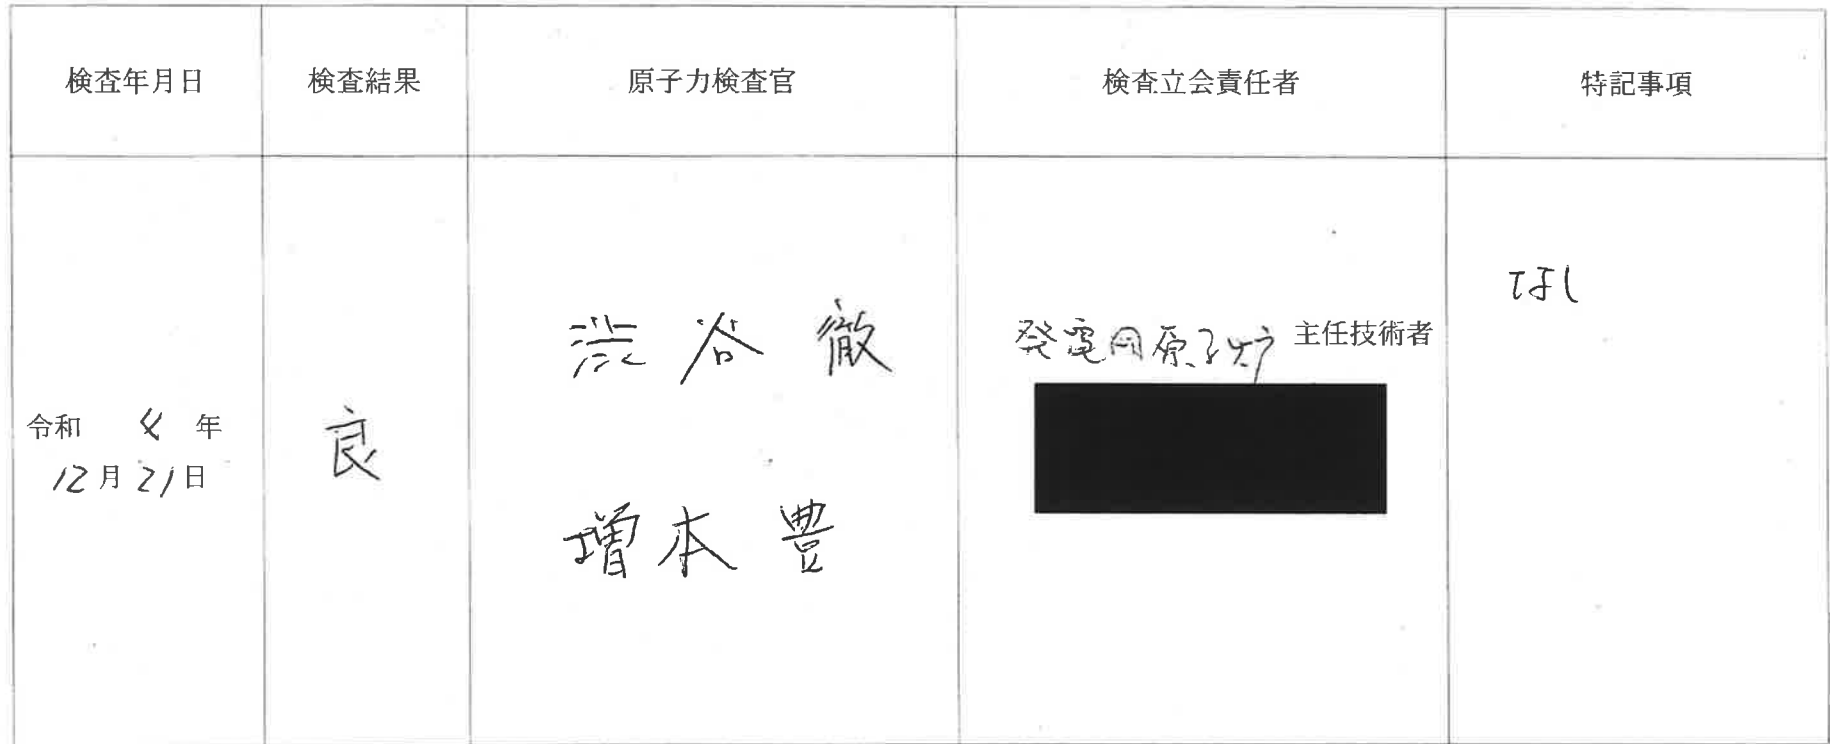 検査年月日 検査結果 原子力検査官 検査立会責任者 特記事項
令和 4 年
12月21日
良
渋谷 徹
増本 豊
発電用原子炉 主任技術者
なし